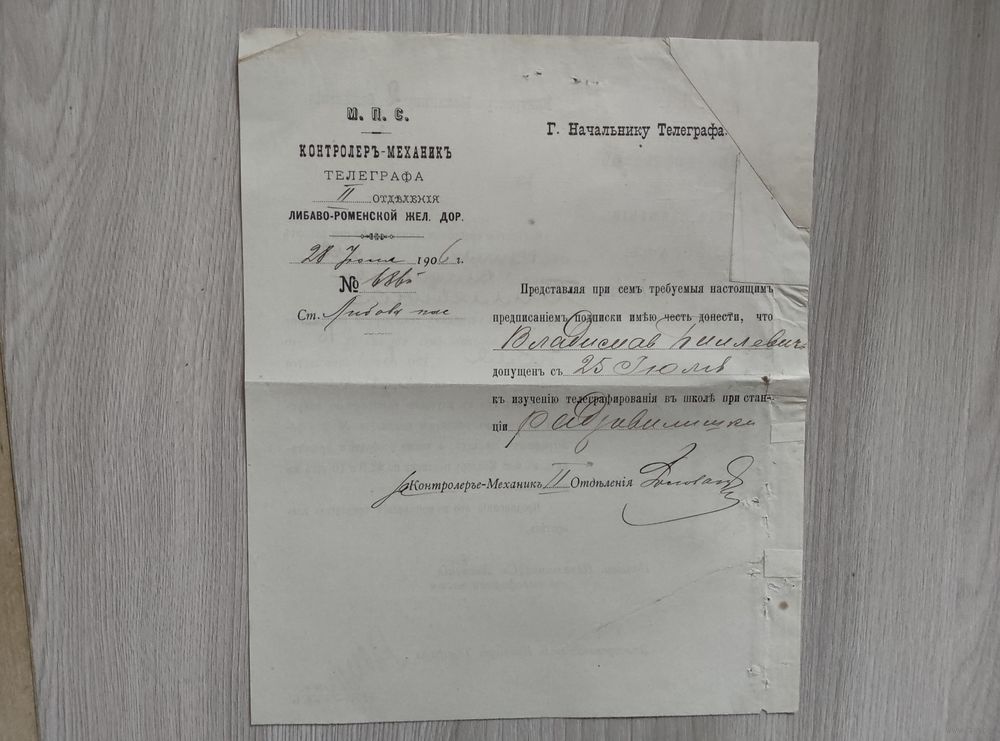 М. П. С.
КОНТРОЛЕРЪ-МЕХАНИКЪ
ТЕЛЕГРАФА
II ОТДѢЛЕНІЯ
ЛИБАВО-РОМЕНСКОЙ ЖЕЛ. ДОР.
28 1906 г.
№
Ст. Либава пас
Г. Начальнику Телеграфа.
Представляя при семъ требуемыя настоящимъ
предписаніемъ подписки имѣю честь донести, что
Владислав
допущенъ съ 25 Іюля
къ изученію телеграфированія въ школѣ при стан-
ціи Радзивилишки
Контролеръ-Механикъ II Отдѣленія